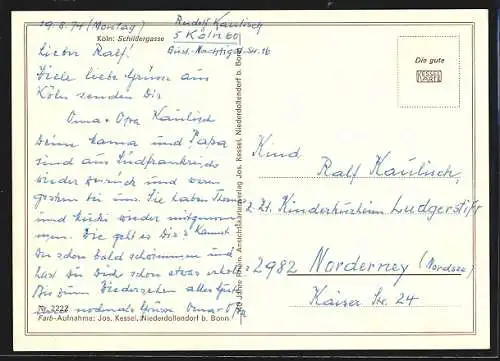 19.8.74 (Montag)
Rudolf Kaulisch
5 Köln 60
Gust.-Nachtigal-Str. 16
Köln: Schildergasse
Lieber Ralf!
Viele liebe Grüsse aus
Köln senden Dir
Oma + Opa Kaulisch
Deine Mama und Papa
sind aus Südfrankreich
wieder zurück und waren
gestern bei uns. Sie haben
und wieder mitgenom-
men. Wie geht es Dir? Kannst
Du schon bald schwimmen und
hast Du Dich schon etwas erholt.
Bis zum Wiedersehen alles Gute
nochmals Grüsse Oma + Opa
Nr. 2222
Farb-Aufnahme: Jos. Kessel, Niederdollendorf b. Bonn
Jahre Köln. Ansichtskartenverlag Jos. Kessel, Niederdollendorf b. Bonn
Die gute
KESSEL
KARTE
Kind
Ralf Kaulisch,
z. Zt. Kinderkurheim Ludgerstift
2982 Norderney (Nordsee)
Kaiser Str. 24